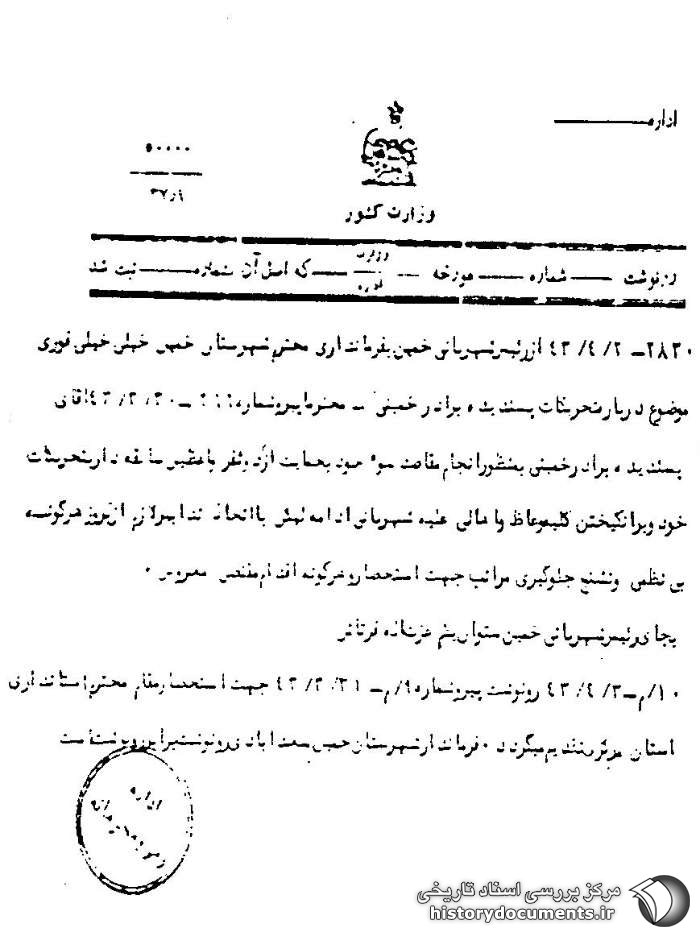 اداره
۵۰۰۰۰
۳۷٫۹
وزارت کشور
رونوشت شماره مورخه وزارت اداره که اصل آن بشماره ثبت شد
۲۸۳۰ـ ۴۳/۴/۲ از رئیس شهربانی خمین بفرمانداری محترم شهرستان خمین خیلی خیلی فوری
موضوع درباره تحریکات پسندیده برادر خمینی ـ محترما پیرو شماره آقای
پسندیده برادر خمینی بمنظور انجام مقاصد سوء خود بحمایت از دو نفر واعظین سابقه دار تحریکات
خود و برانگیختن کلیه وعاظ و اهالی علیه شهربانی ادامه لیکن با اتخاذ تدابیر لازم از بروز هرگونه
بی نظمی و تشنج جلوگیری مراتب جهت استحضار و هرگونه اقدام مقتضی معروض ۰
بجای رئیس شهربانی خمین ستوان یکم
۱۰/م ـ ۴۳/۴/۳ رونوشت پیرو شماره ۹/م ـ جهت استحضار مقام محترم استانداری
استان مرکز تقدیم میگردد ۰ فرماندار شهرستان خمین سعدآبادی رونوشت برابر رونوشت است
اداره
مرکز بررسی اسناد تاریخی
historydocuments.ir